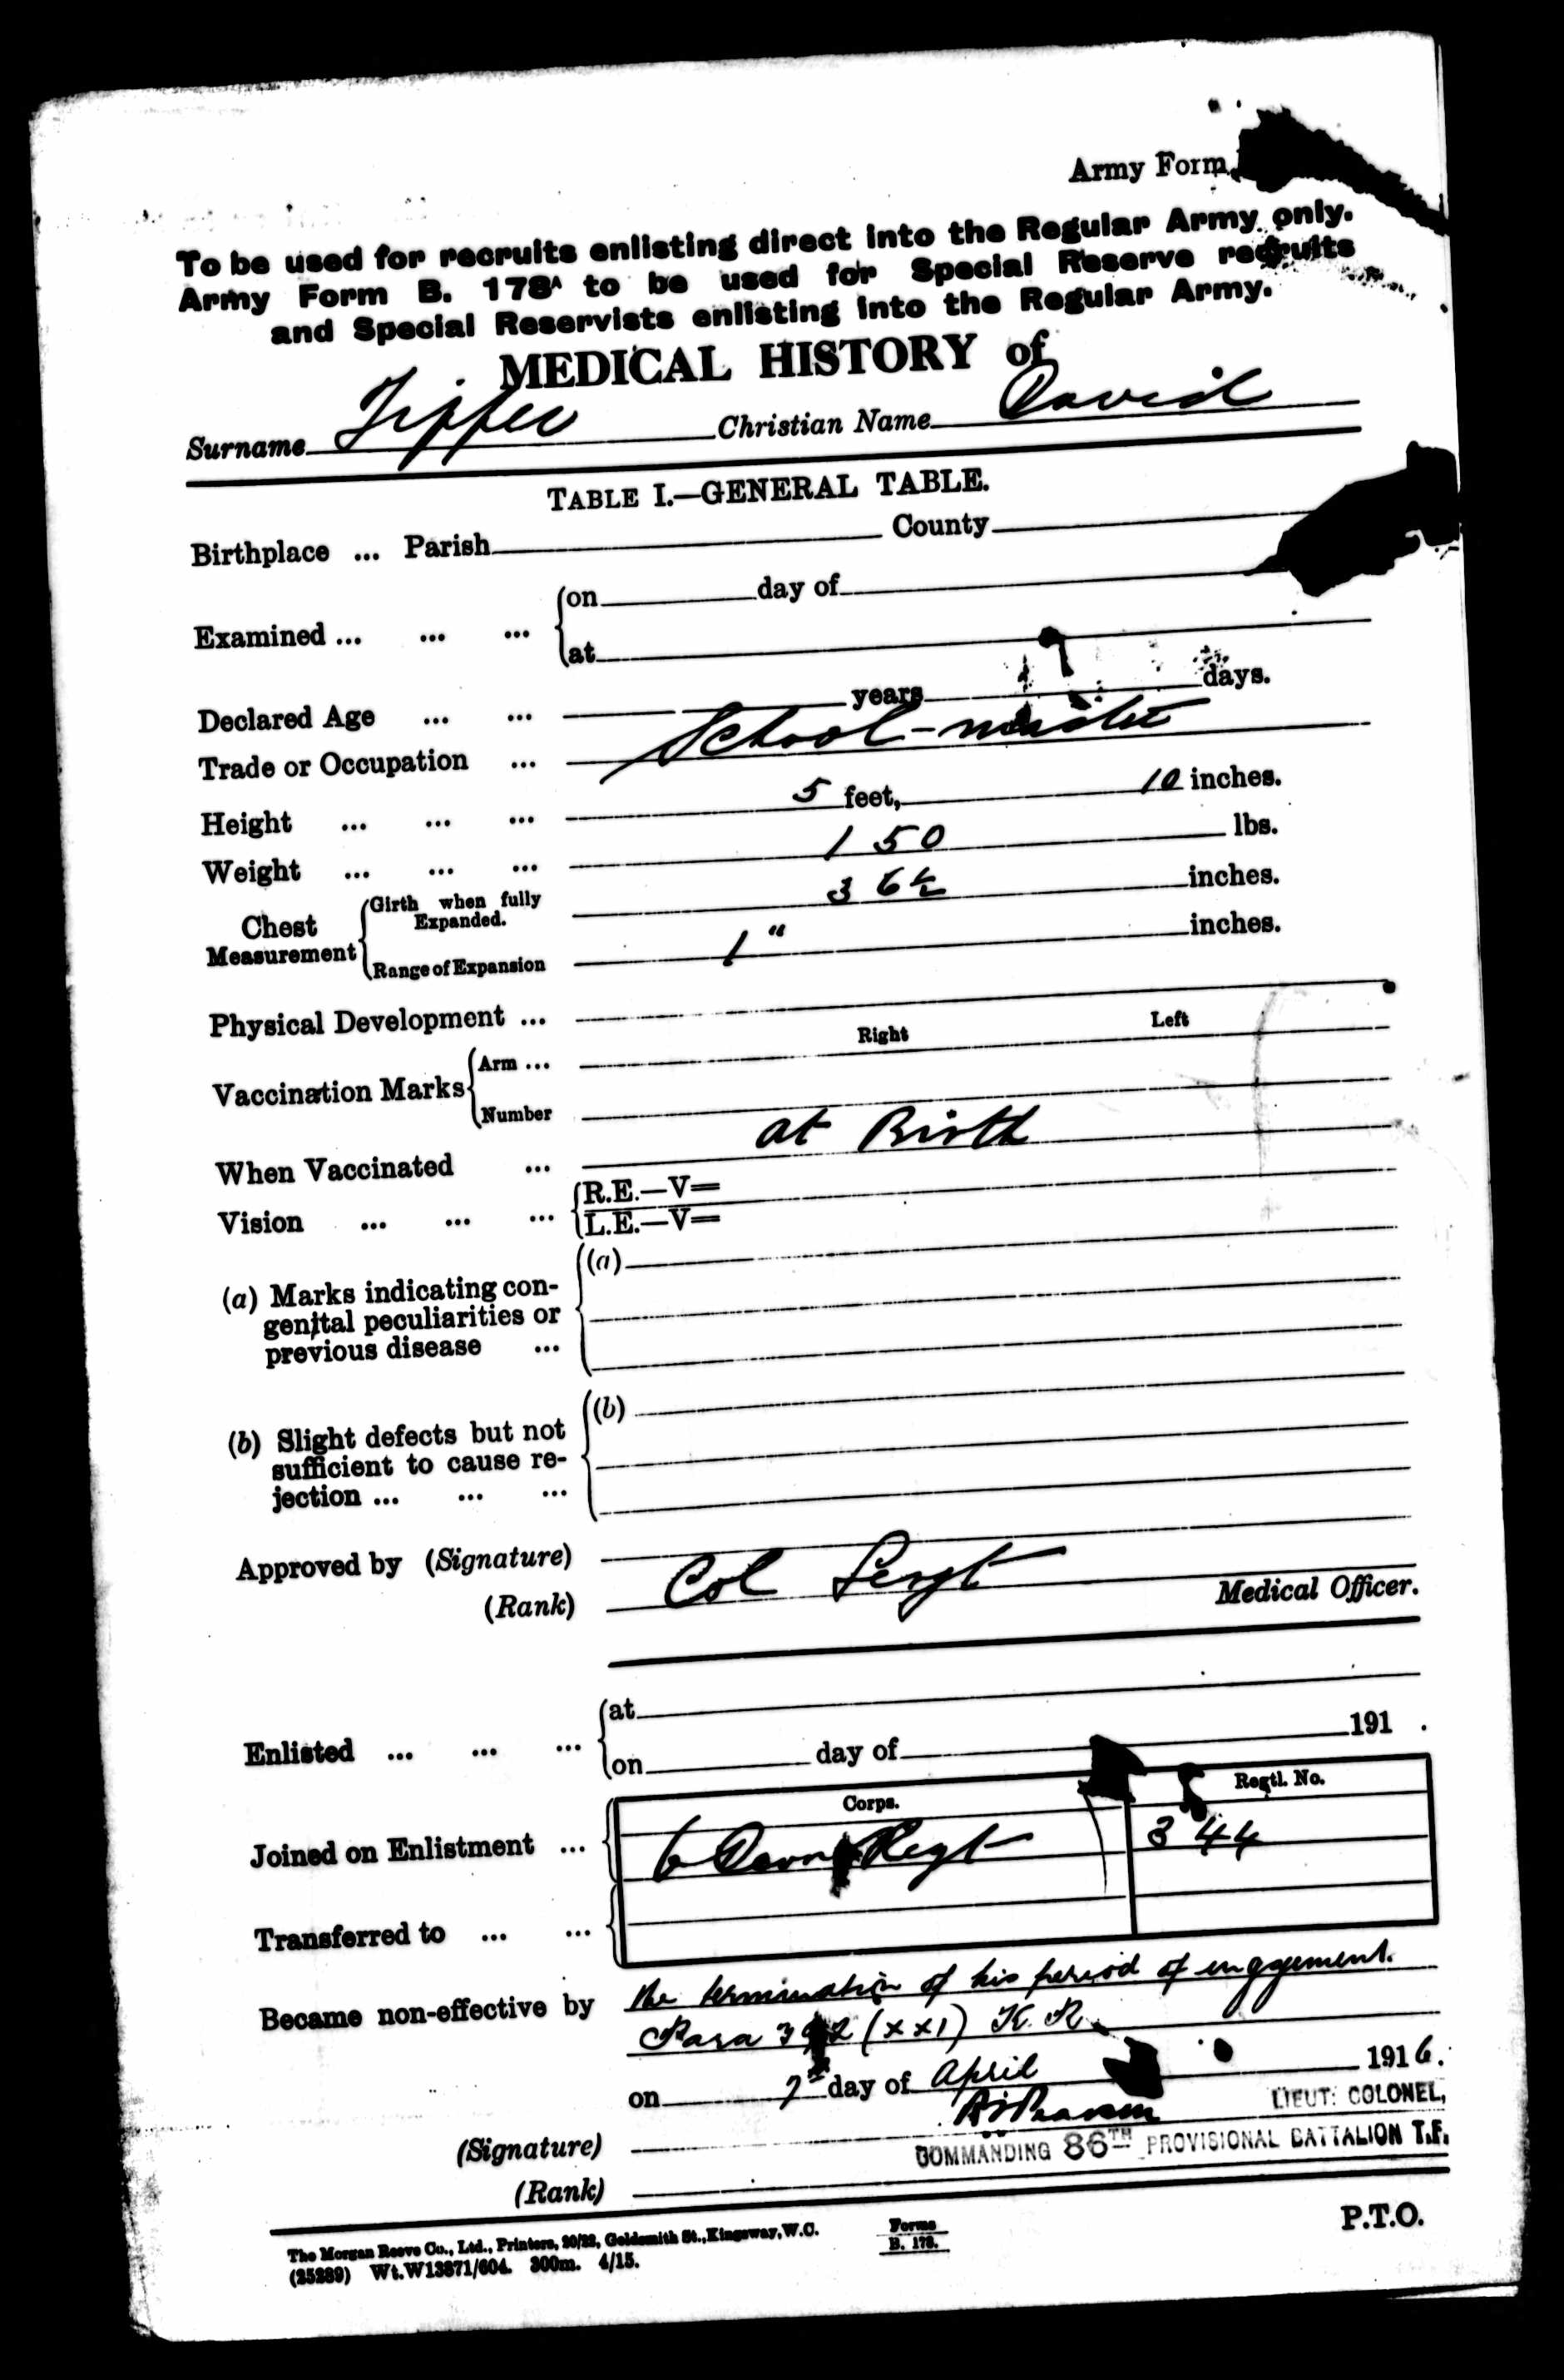 Army Form
To be used for recruits enlisting direct into the Regular Army only.
Army Form B. 178A to be used for Special Reserve recruits
and Special Reservists enlisting into the Regular Army.
MEDICAL HISTORY of
Surname Christian Name David
TABLE I.—GENERAL TABLE.
Birthplace ... Parish County
Examined ... ... ... on day of
at
Declared Age ... ... years days.
Trade or Occupation ... School-master
Height ... ... ... 5 feet, 10 inches.
Weight ... ... ... 150 lbs.
Chest Measurement Girth when fully Expanded. 36½ inches.
Range of Expansion 1" inches.
Physical Development ...
Right Left
Vaccination Marks Arm ...
Number
When Vaccinated ... at Birth
Vision ... ... ... R.E.—V=
L.E.—V=
(a) Marks indicating con- (a)
genital peculiarities or
previous disease ...
(b) Slight defects but not (b)
sufficient to cause re-
jection ... ... ...
Approved by (Signature)
(Rank) Col Sergt Medical Officer.
Enlisted ... ... ... at
on day of 191 .
Corps. Regtl. No.
Joined on Enlistment ... 6 Devon Regt 344
Transferred to ... ...
Became non-effective by the termination of his period of engagement.
Para 392 (xxi) K.R.
on 7th day of April 1916.
LIEUT: COLONEL,
(Signature) COMMANDING 86TH PROVISIONAL BATTALION T.F.
(Rank)
The Morgan Reeve Co., Ltd., Printers, 20/22, Goldsmith St., Kingsway, W.C. Forms
(25289) Wt.W13871/604. 300m. 4/15. B. 178.
P.T.O.